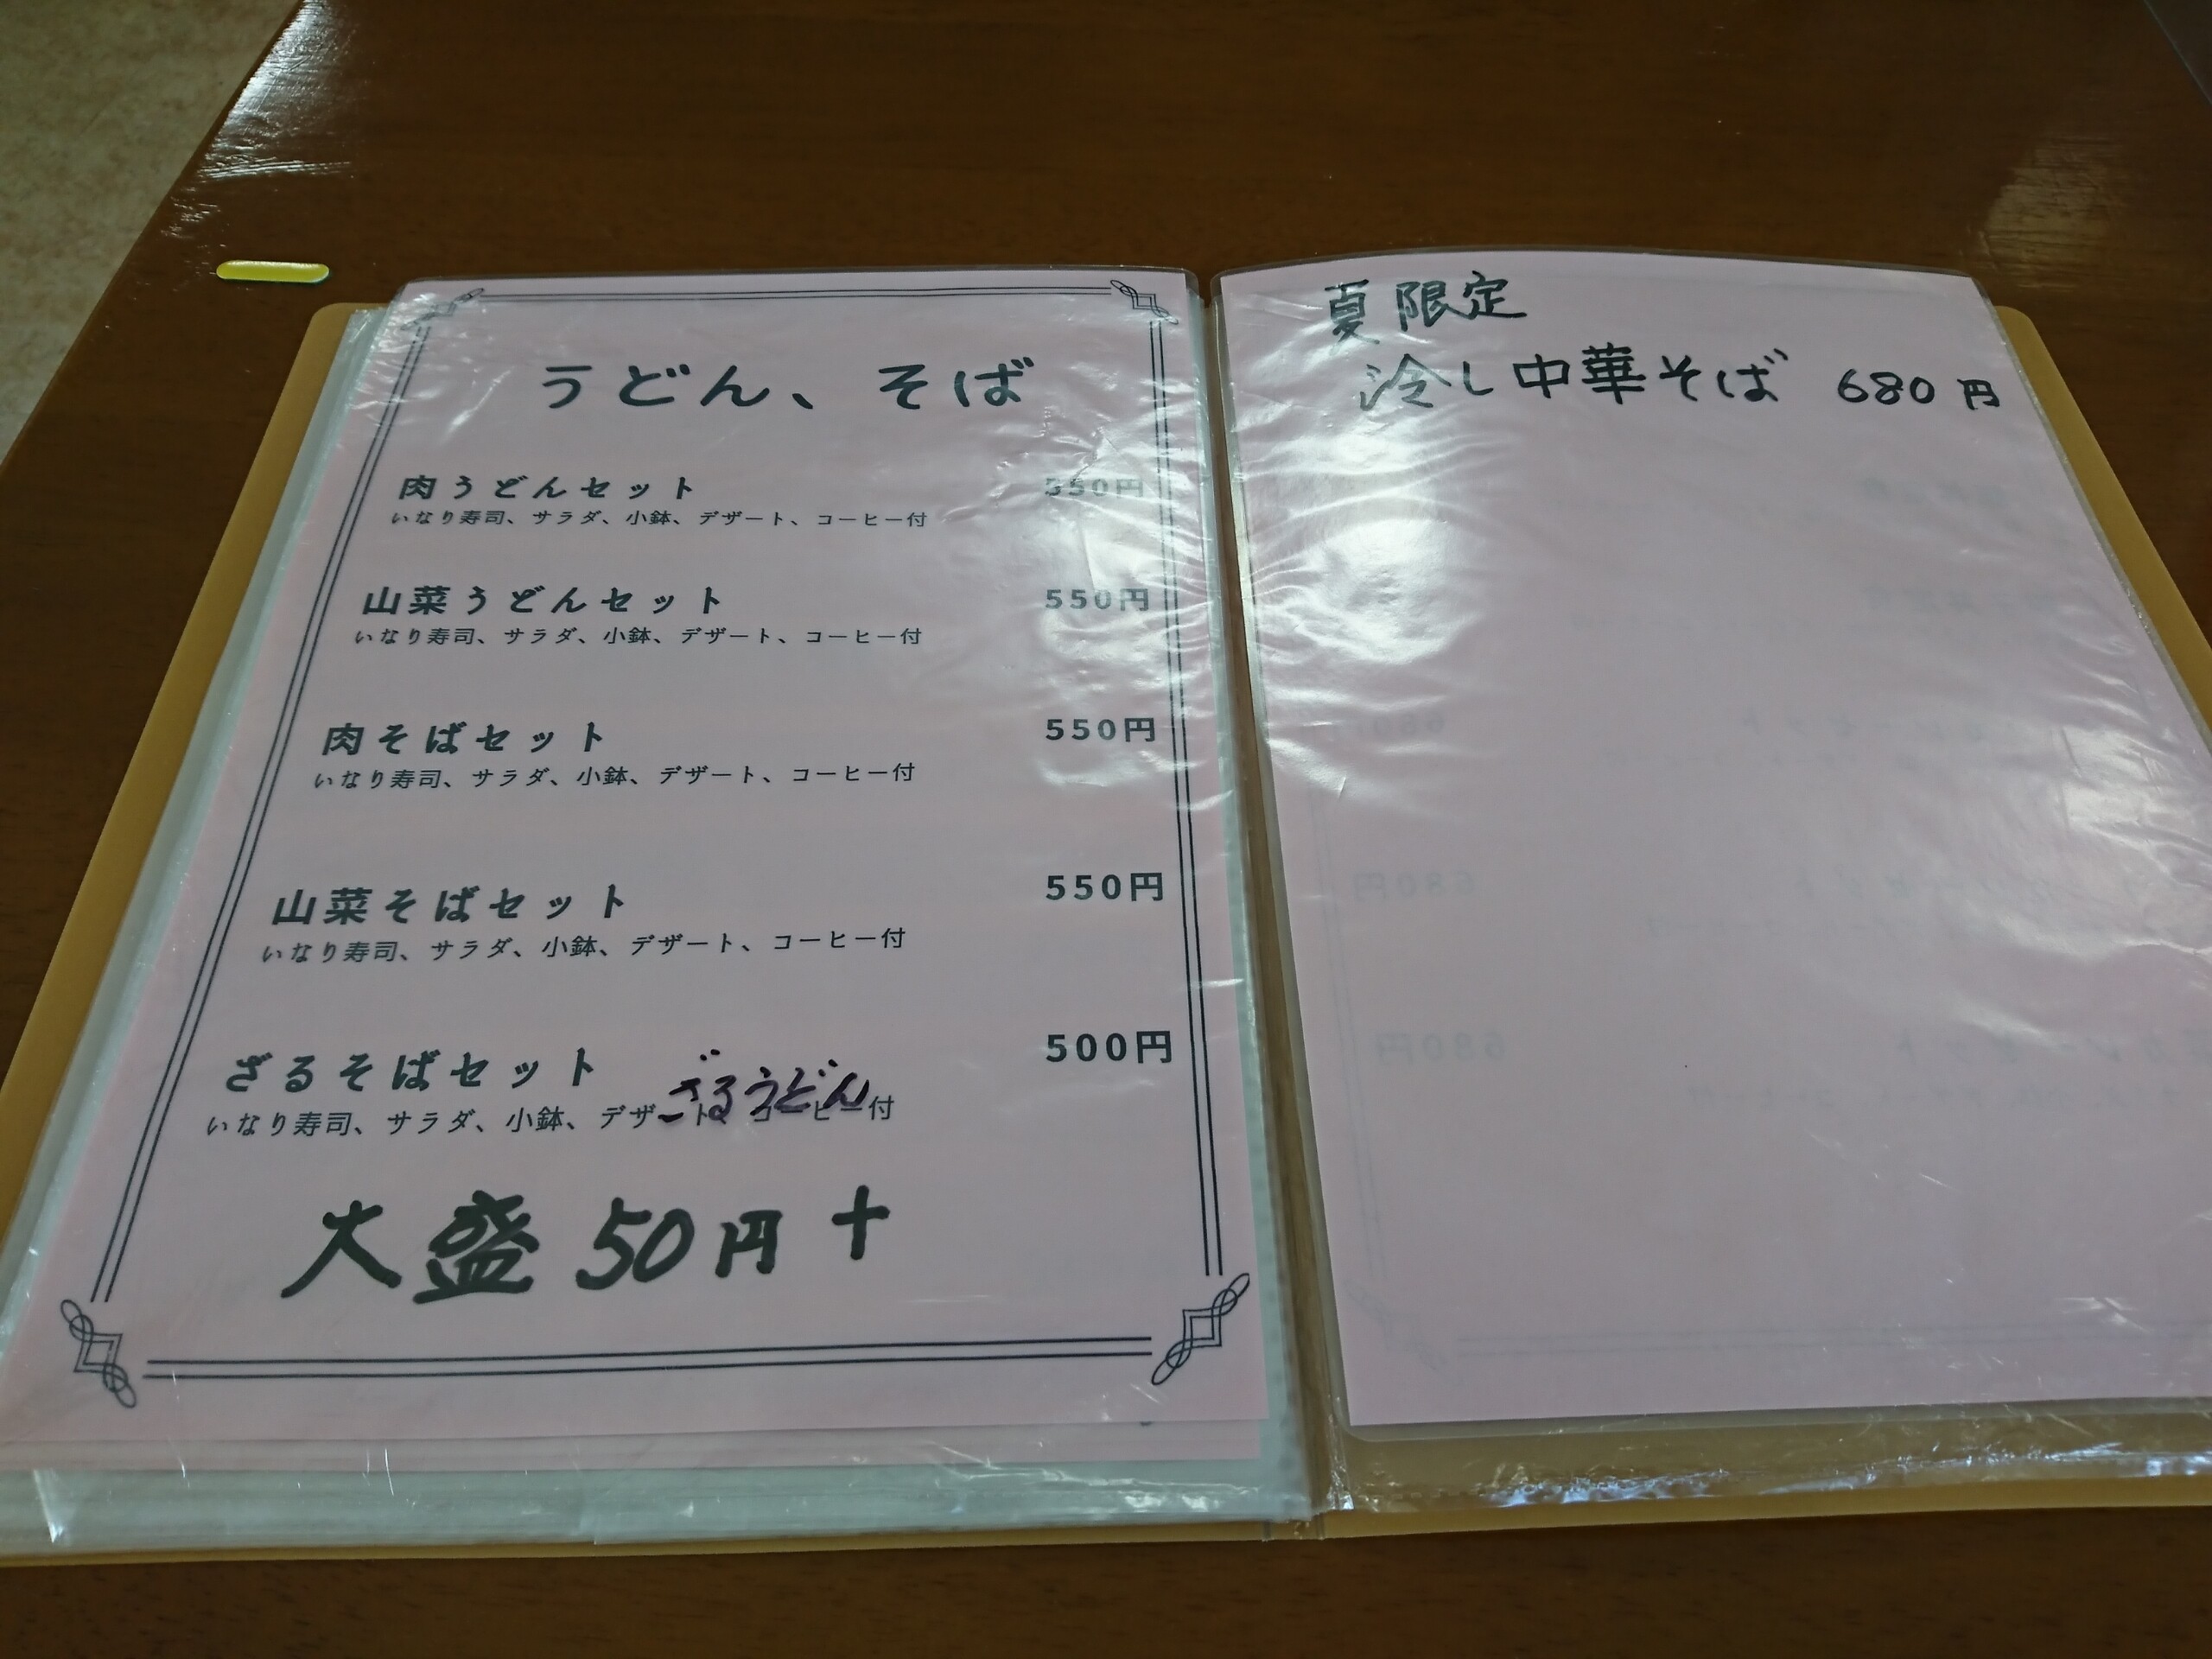 うどん、そば
肉うどんセット 550円
いなり寿司、サラダ、小鉢、デザート、コーヒー付
山菜うどんセット 550円
いなり寿司、サラダ、小鉢、デザート、コーヒー付
肉そばセット 550円
いなり寿司、サラダ、小鉢、デザート、コーヒー付
山菜そばセット 550円
いなり寿司、サラダ、小鉢、デザート、コーヒー付
ざるそばセット 500円
ざるうどん
いなり寿司、サラダ、小鉢、デザート、コーヒー付
大盛 50円 +
夏限定
冷し中華そば 680円